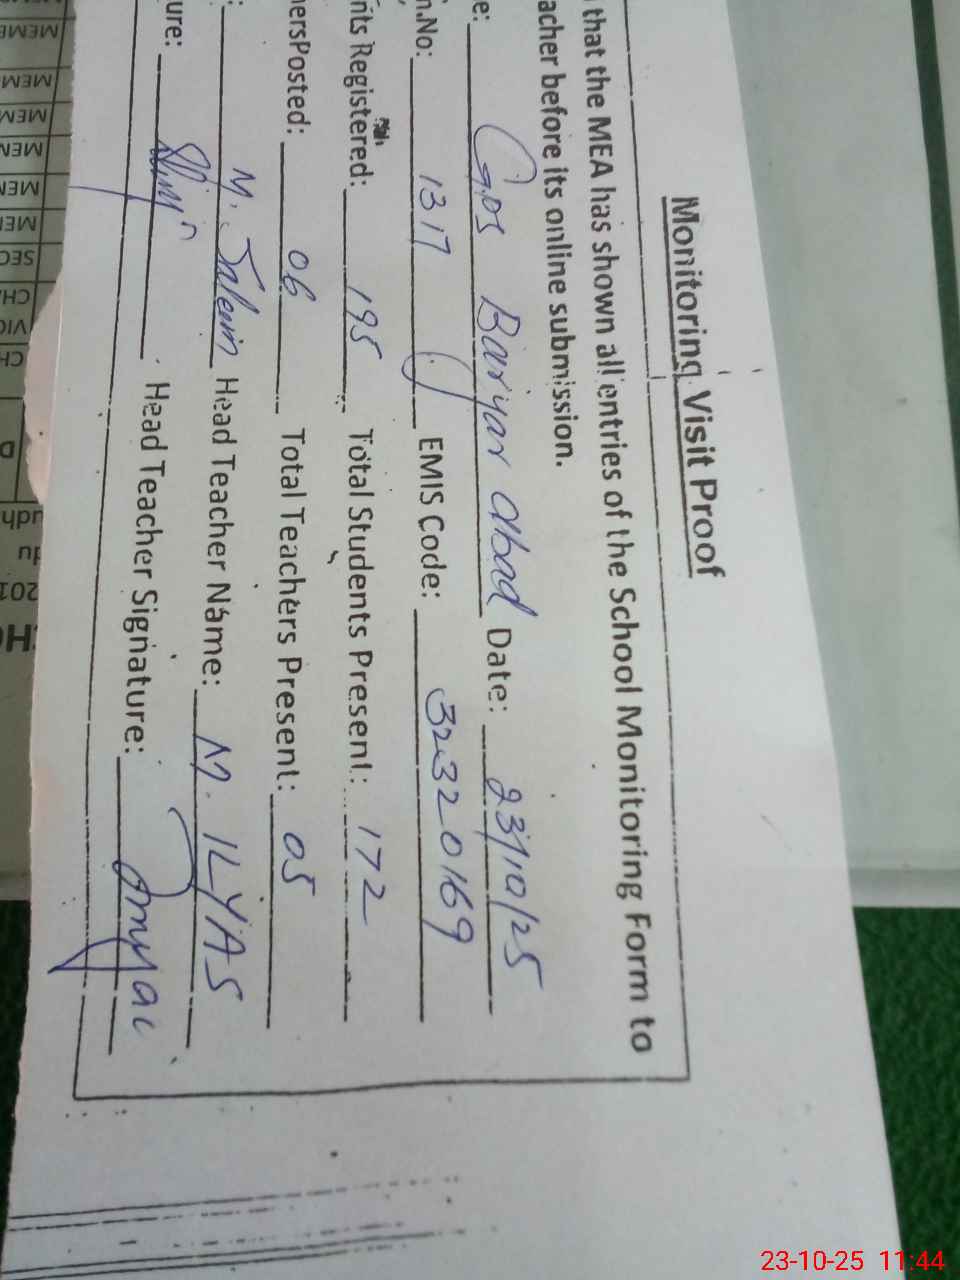 Monitoring Visit Proof
that the MEA has shown all entries of the School Monitoring Form to
acher before its online submission.
e: GPS Bariyar abad Date: 23/10/25
n.No: 1317 EMIS Code: 32320169
nts Registered: 195 Total Students Present: 172
hersPosted: 06 Total Teachers Present: 05
: M. Saleem Head Teacher Name: M. ILYAS
ure: Head Teacher Signature:
MEM
MEM
MEM
MEM
MEM
SEC
CHA
VIC
CH
D
udh
201
23-10-25 11:44